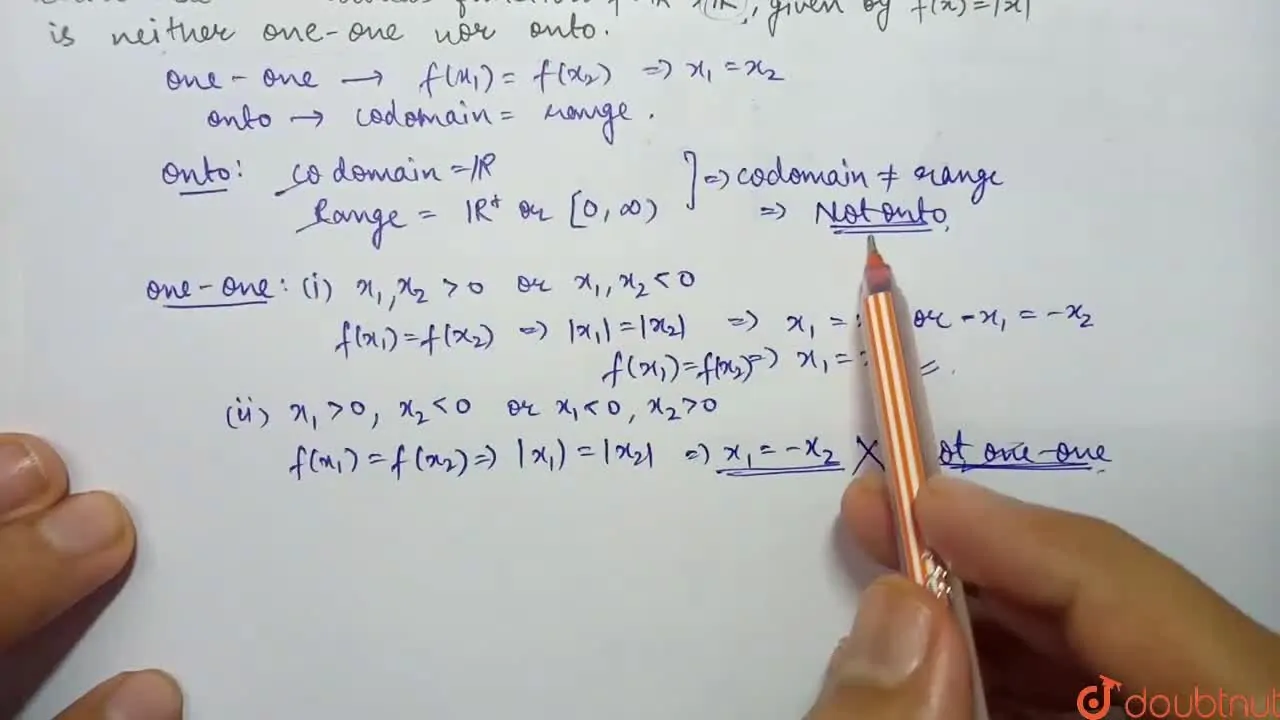 function f : R → R, given by f(x) = |x|
is neither one-one nor onto.
one-one → f(x₁) = f(x₂) ⇒ x₁ = x₂
onto → codomain = range.
onto: codomain = R
Range = R⁺ or [0, ∞) ] ⇒ codomain ≠ range
⇒ Not onto.
one-one: (i) x₁, x₂ > 0 or x₁, x₂ < 0
f(x₁) = f(x₂) ⇒ |x₁| = |x₂| ⇒ x₁ = or -x₁ = -x₂
f(x₁) = f(x₂) ⇒ x₁ =
(ii) x₁ > 0, x₂ < 0 or x₁ < 0, x₂ > 0
f(x₁) = f(x₂) ⇒ |x₁| = |x₂| ⇒ x₁ = -x₂ X ot one-one
doubtnut